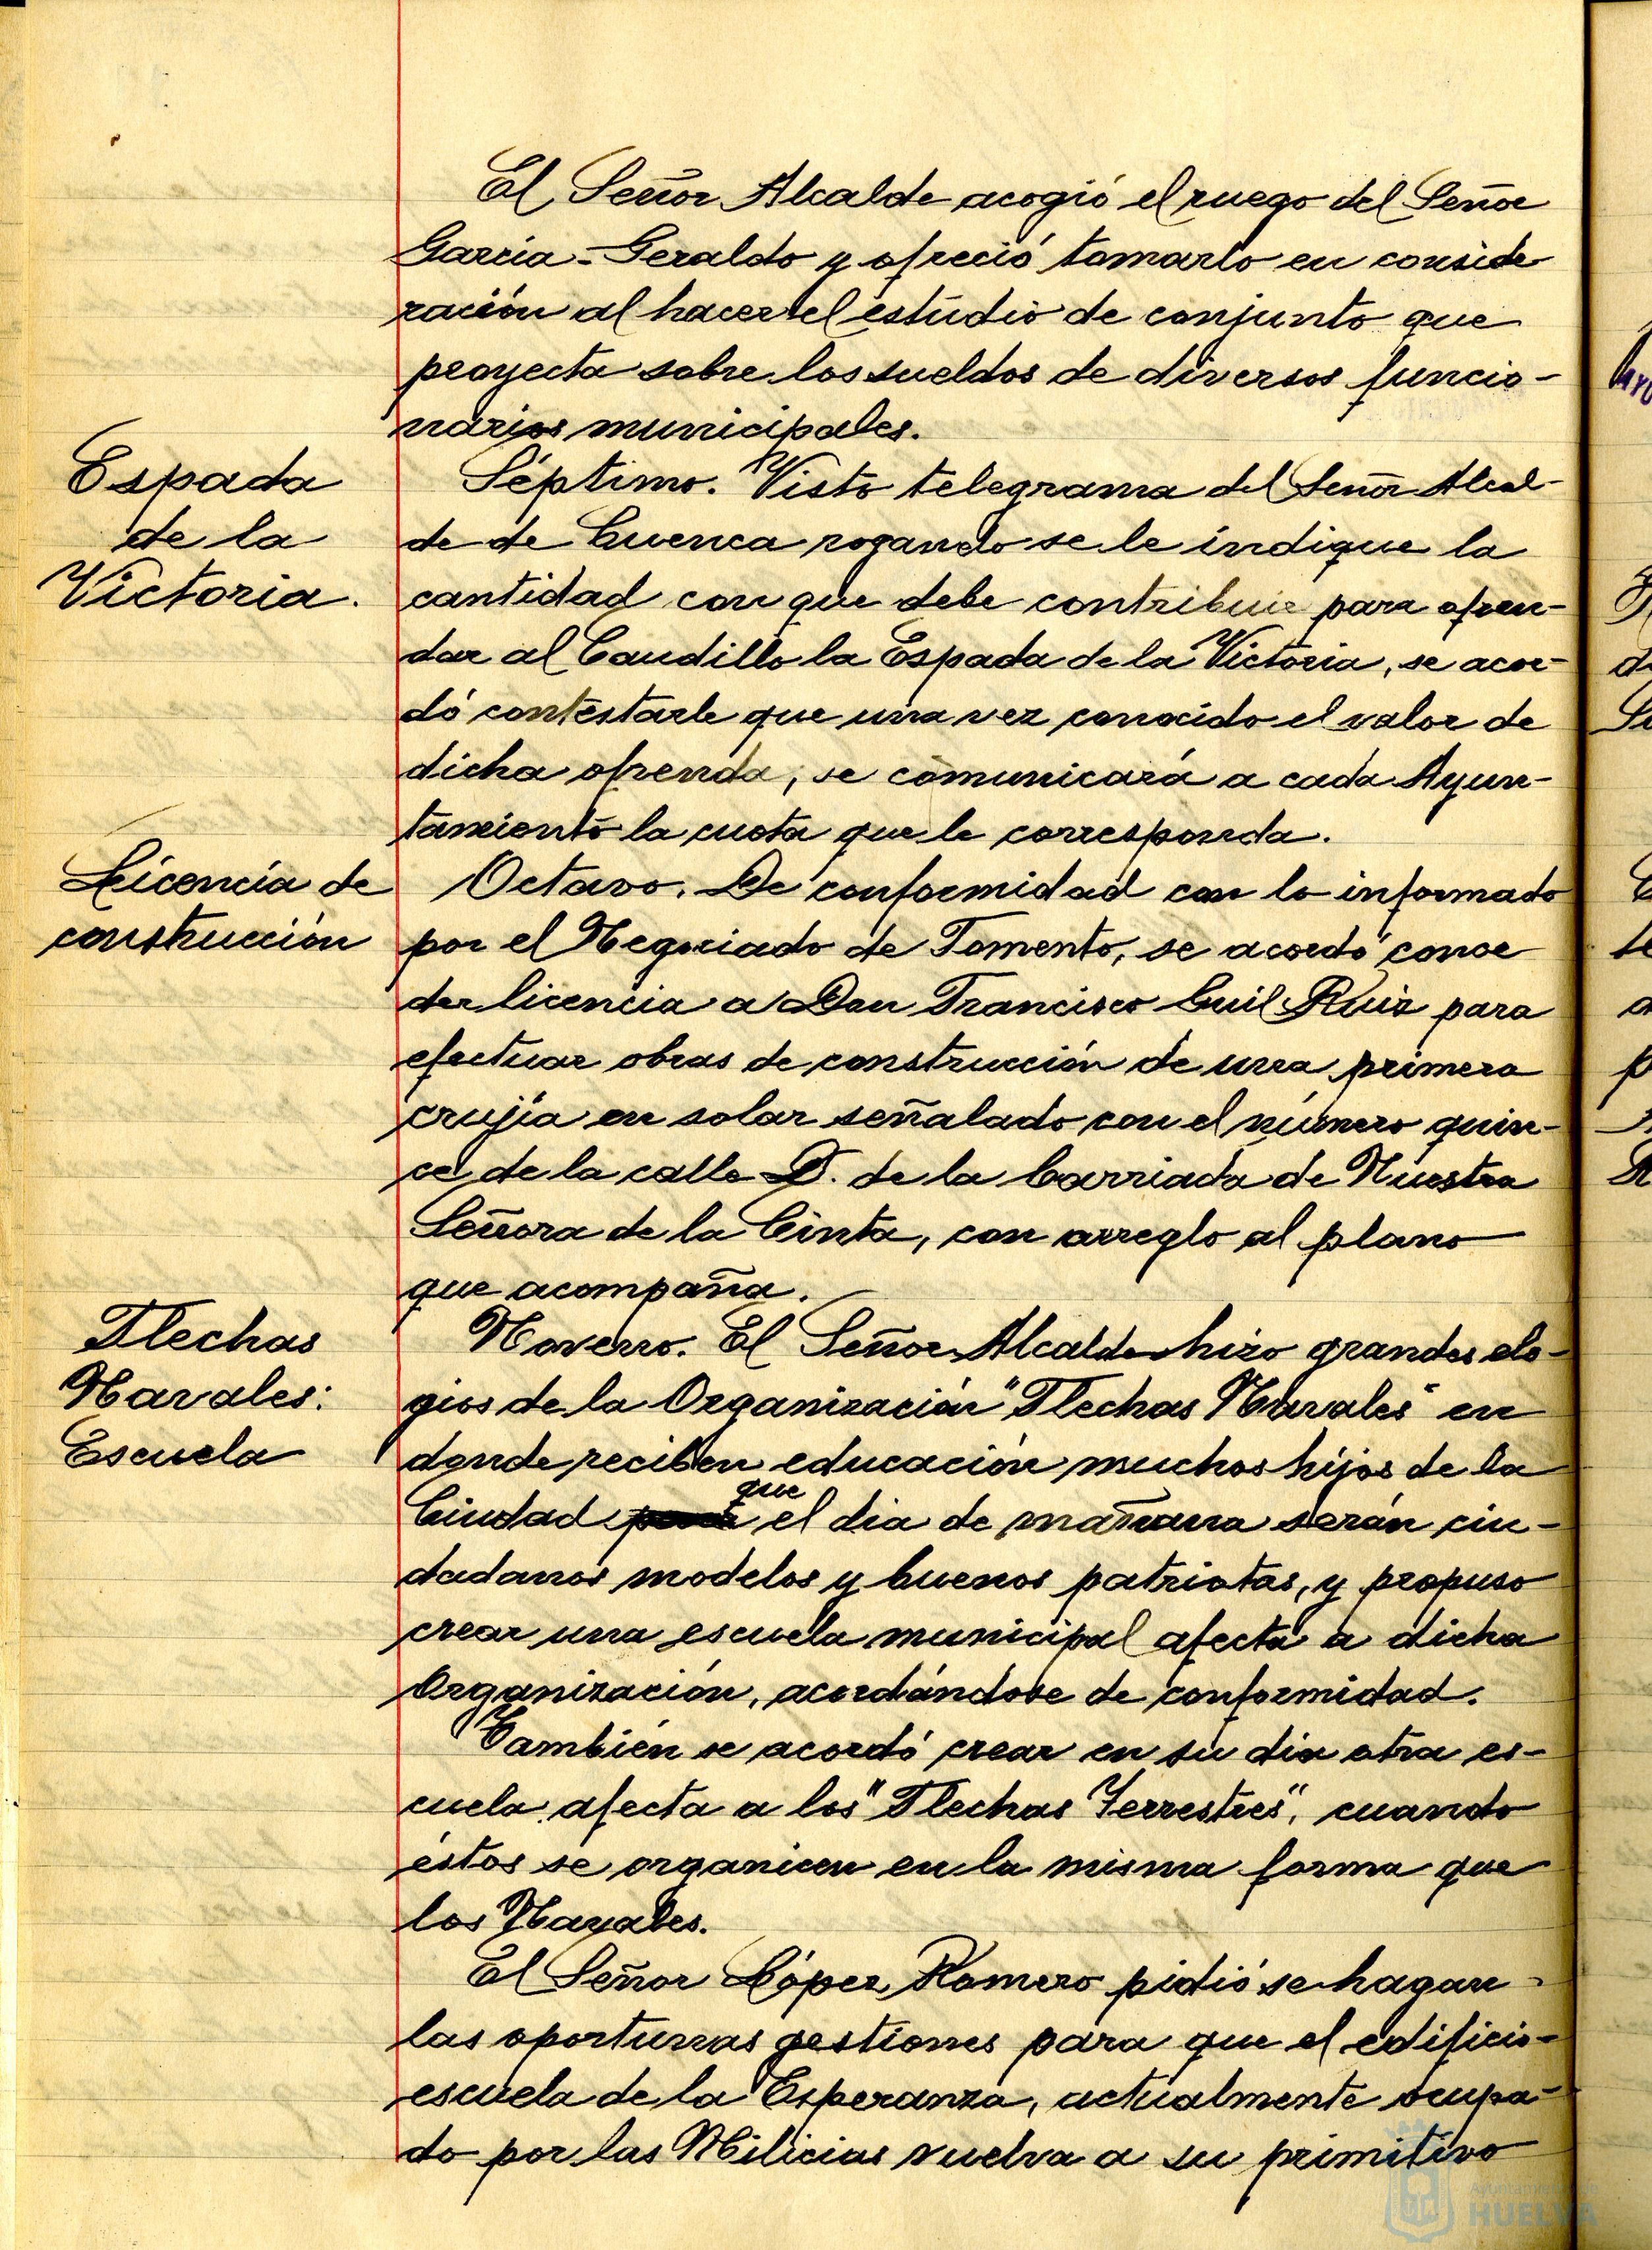 El Señor Alcalde acogió el ruego del Señor
García-Geraldo y ofreció tomarlo en conside
ración al hacer el estudio de conjunto que
proyecta sobre los sueldos de diversos funcio-
narios municipales.
Espada
de la
Victoria.
Séptimo. Visto telegrama del Señor Alcal-
de de Cuenca rogando se le indique la
cantidad con que debe contribuir para ofren-
dar al Caudillo la Espada de la Victoria, se acor-
dó contestarle que una vez conocido el valor de
dicha ofrenda, se comunicará a cada Ayun-
tamiento la cuota que le corresponda.
Licencia de
construcción
Octavo. De conformidad con lo informado
por el Negociado de Fomento, se acordó conce
der licencia a Don Francisco Guil Ruiz para
efectuar obras de construcción de una primera
crujía en solar señalado con el número quin-
ce de la calle D. de la barriada de Nuestra
Señora de la Cinta, con arreglo al plano
que acompaña.
Flechas
Navales:
Escuela
Noveno. El Señor Alcalde hizo grandes elo-
gios de la Organización "Flechas Navales" en
donde reciben educación muchos hijos de la
Ciudad que el dia de mañana serán ciu-
dadanos modelos y buenos patriotas, y propuso
crear una escuela municipal afecta a dicha
Organización, acordándose de conformidad.
También se acordó crear en su dia otra es-
cuela afecta a los "Flechas Terrestres", cuando
éstos se organicen en la misma forma que
los Navales.
El Señor López Romero pidió se hagan
las oportunas gestiones para que el edificio-
escuela de la Esperanza, actualmente ocupa-
do por las Milicias vuelva a su primitivo
Ayuntamiento de
HUELVA